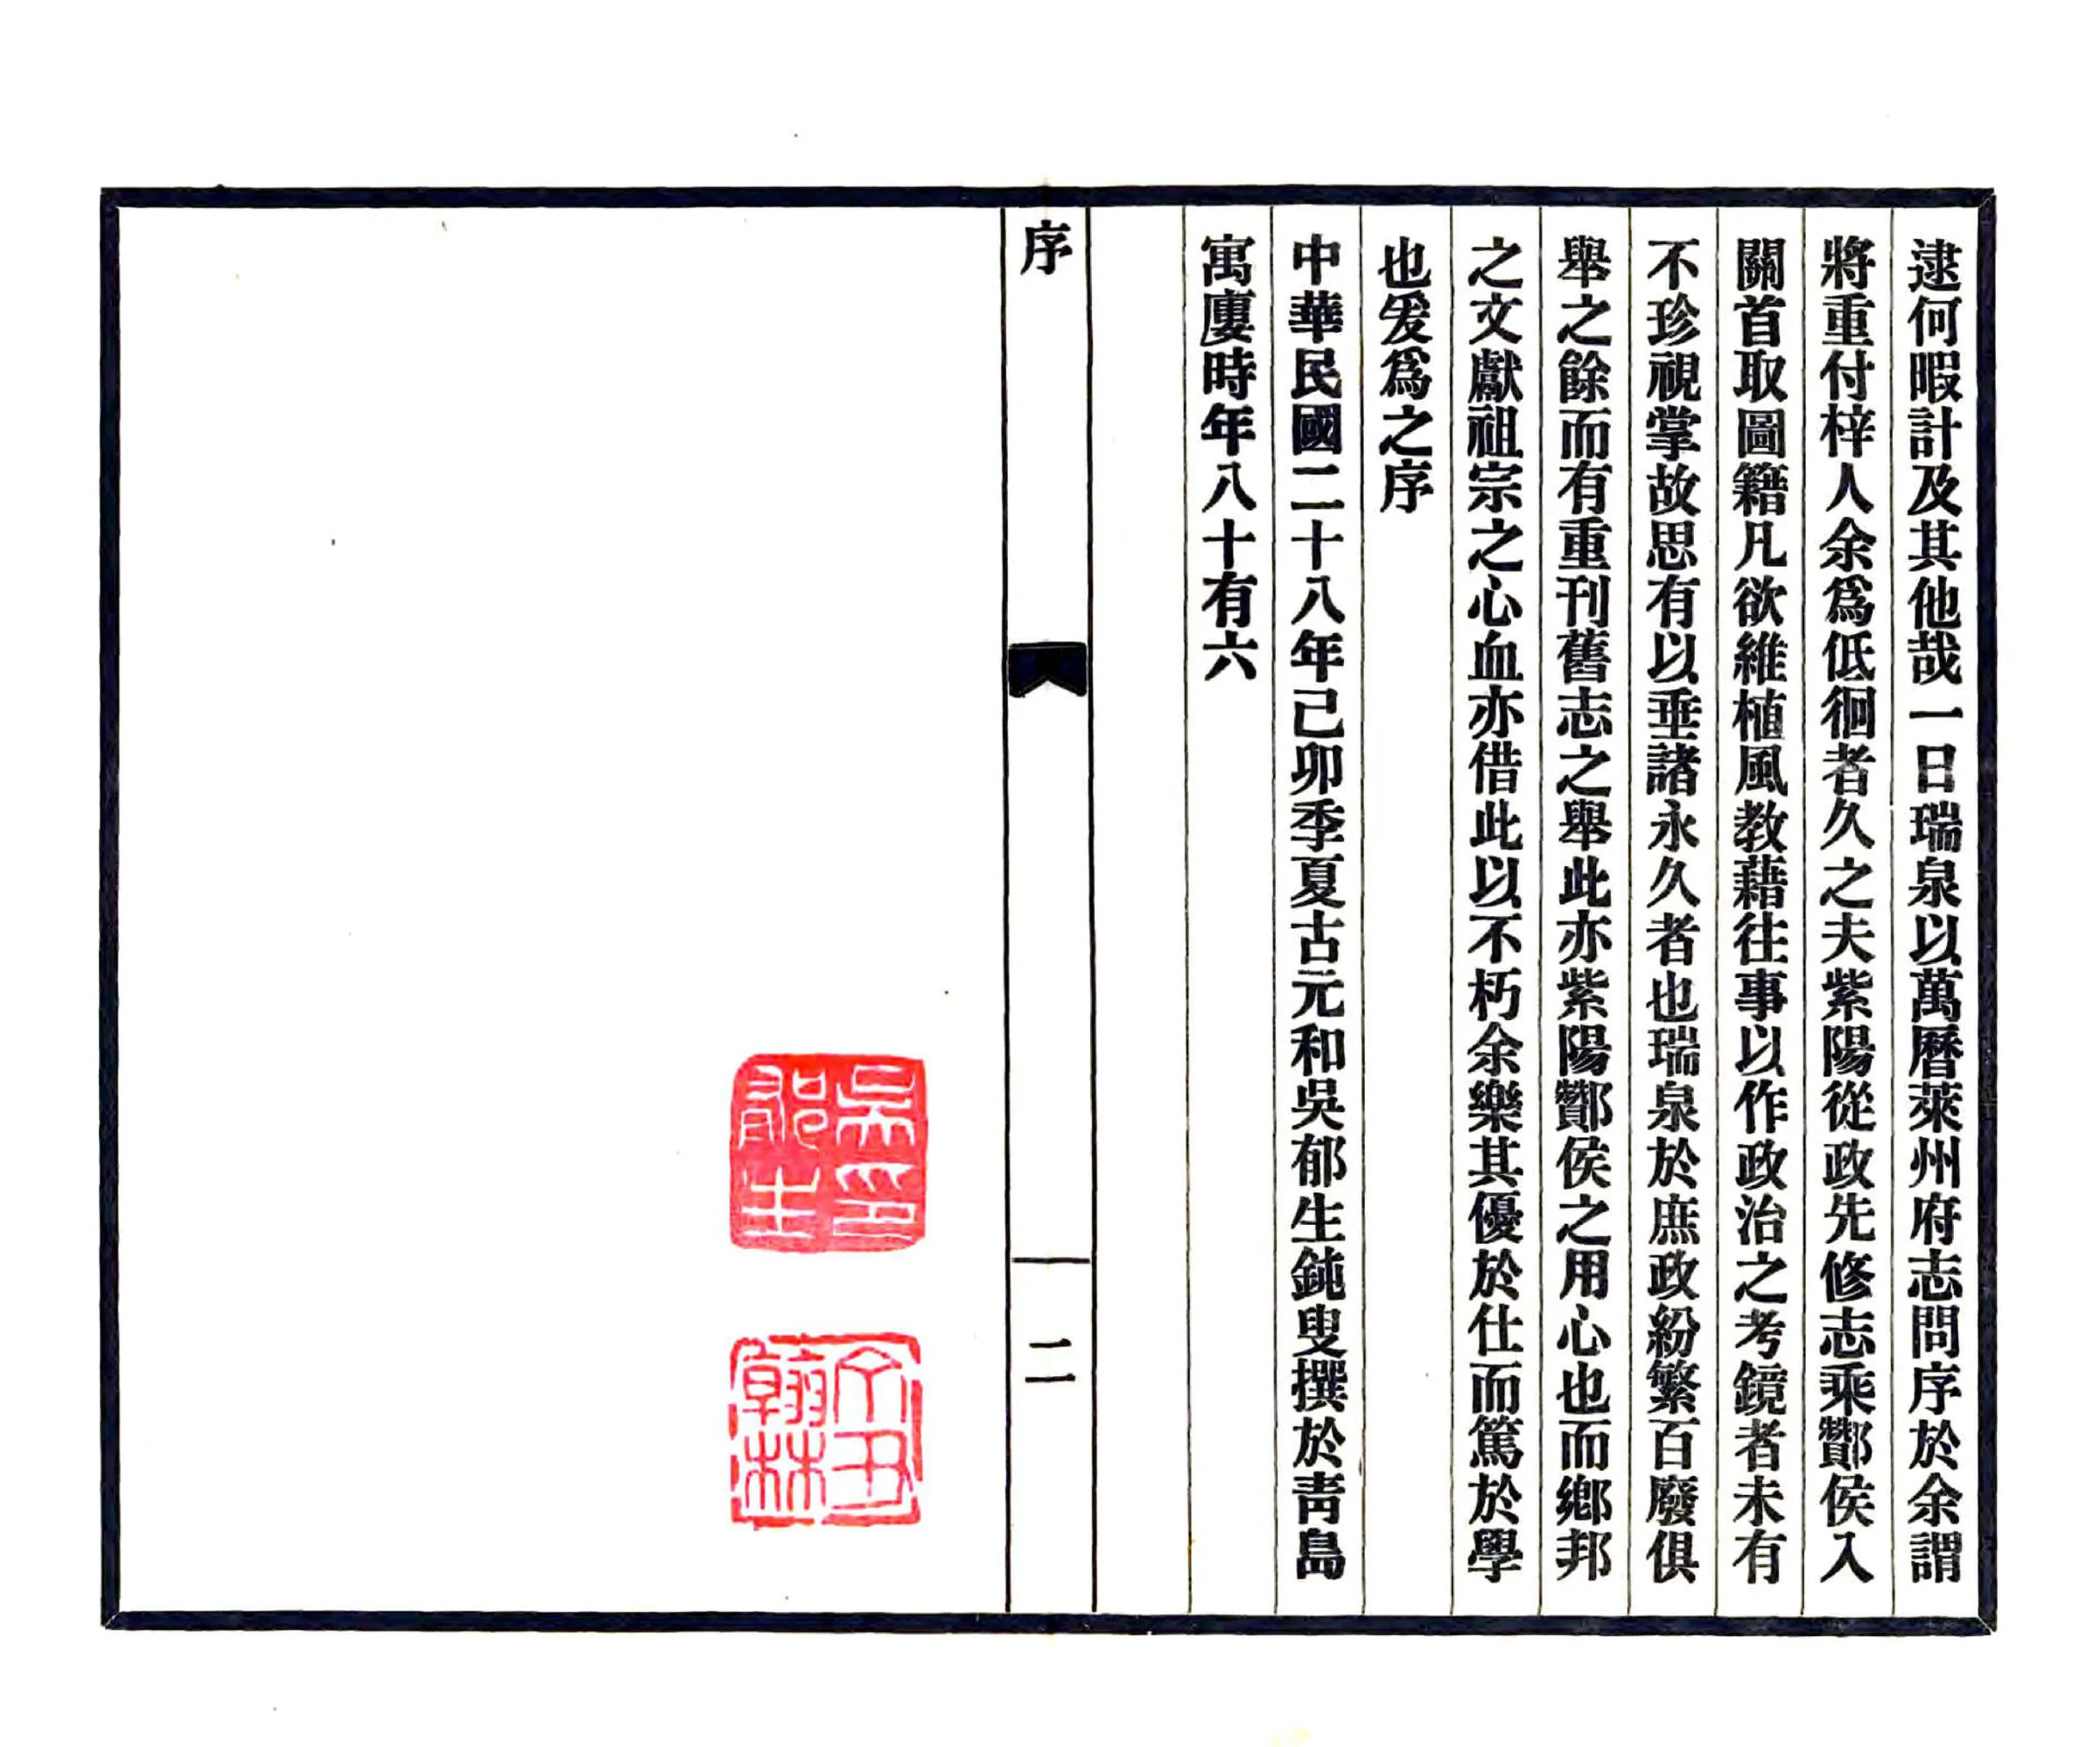 逮何暇計及其他哉一日瑞泉以萬曆萊州府志問序於余謂
將重付梓人余爲低徊者久之夫紫陽從政先修志乘酇侯入
關首取圖籍凡欲維植風教藉往事以作政治之考鏡者未有
不珍視掌故思有以垂諸永久者也瑞泉於庶政紛繁百廢俱
舉之餘而有重刊舊志之舉此亦紫陽酇侯之用心也而鄉邦
之文獻祖宗之心血亦借此以不朽余樂其優於仕而篤於學
也爰爲之序
中華民國二十八年己卯季夏古元和吳郁生鈍叟撰於青島
寓廔時年八十有六
序
二
吳印郁生
丁丑翰林